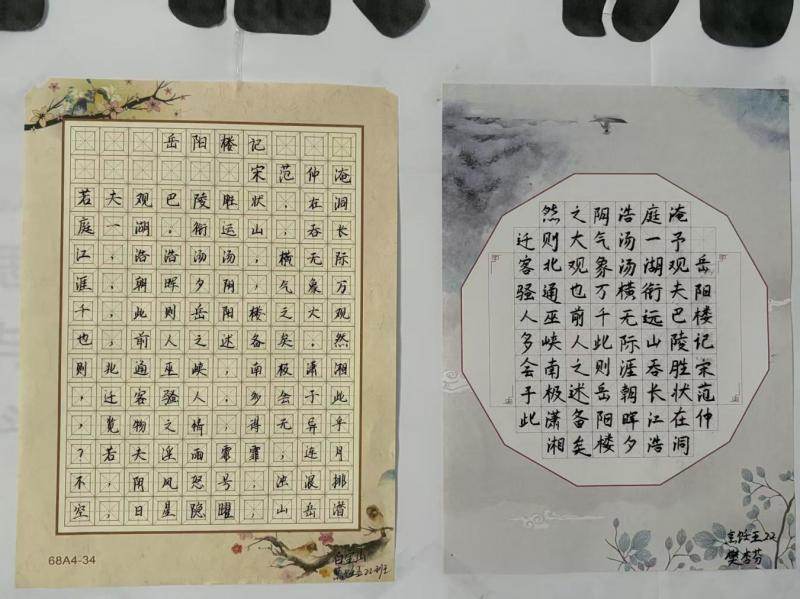 岳阳楼记
宋范仲淹
若夫观巴陵胜状,在洞
庭一湖。衔运山,吞长
江,浩浩汤汤,横无际
涯,朝晖夕阴,气象万
千,此则岳阳楼之大观
也,前人之述备矣。然
则,北通巫峡,南极潇湘
,迁客骚人,多会于此
,览物之情,得无异乎
?若夫淫雨霏霏,连月
不,阴风怒号,浊浪排
空,日星隐曜,山岳潜
68A4-34
岳阳楼记宋范仲
淹予观夫巴陵胜状在洞
庭一湖衔远山吞长江浩
浩汤汤横无际涯朝晖夕
阴气象万千此则岳阳楼
之大观也前人之述备矣
然则北通巫峡南极潇湘
迁客骚人多会于此
烹饪五22
樊杏芬